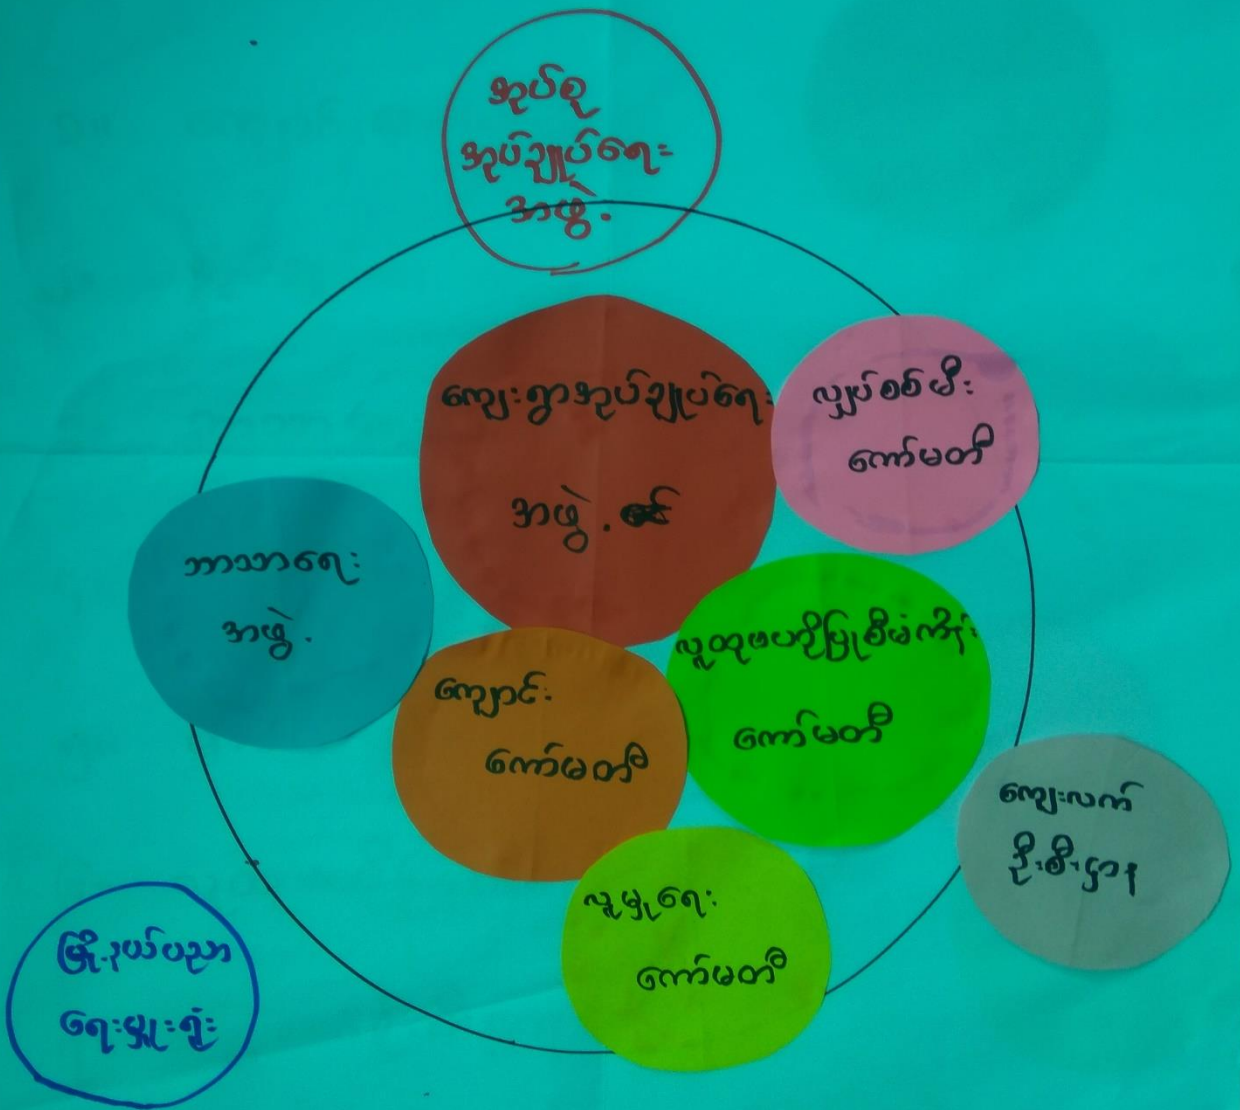 အုပ်စု
အုပ်ချုပ်ရေး
အဖွဲ့
ကျေးရွာအုပ်ချုပ်ရေး
အဖွဲ့
လျှပ်စစ်မီး
ကော်မတီ
ဘာသာရေး
အဖွဲ့
လူထုဗဟိုပြုစီမံကိန်း
ကော်မတီ
ကျောင်း
ကော်မတီ
ကျေးလက်
ဦးစီးဌာန
လူမှုရေး
ကော်မတီ
မြို့နယ်ပညာ
ရေးမှူးရုံး